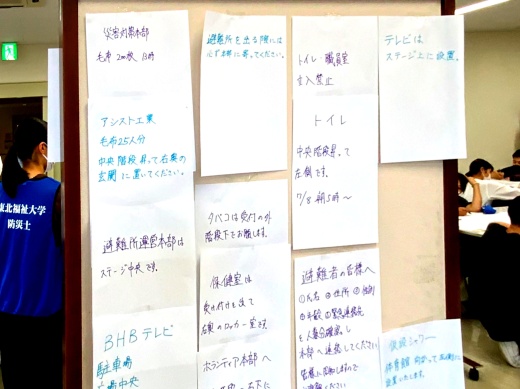 災害対策本部
毛布 200枚 13時
避難所を出る際には
必ず本部に寄ってください。
トイレ・職員室
立入禁止
テレビは
ステージ上に設置。
アシスト工業
毛布25人分
中央階段昇って右奥の
玄関に置いてください。
トイレ
中央階段昇って
左側です。
7/8 朝5時〜
避難所運営本部は
ステージ中央です。
タバコは受付の外
階段下でお願いします。
保健室は
受け付けを出て
右奥のロッカー室です。
ボランティア本部へ
避難者の皆様へ
①氏名 ②住所 ③性別
④年齢 ⑤緊急連絡先
を人数確認し
本部へ連絡してください
BHBテレビ
駐車場
中央
仮設シャワー
体育館 向かって
東北福祉大学
防災士